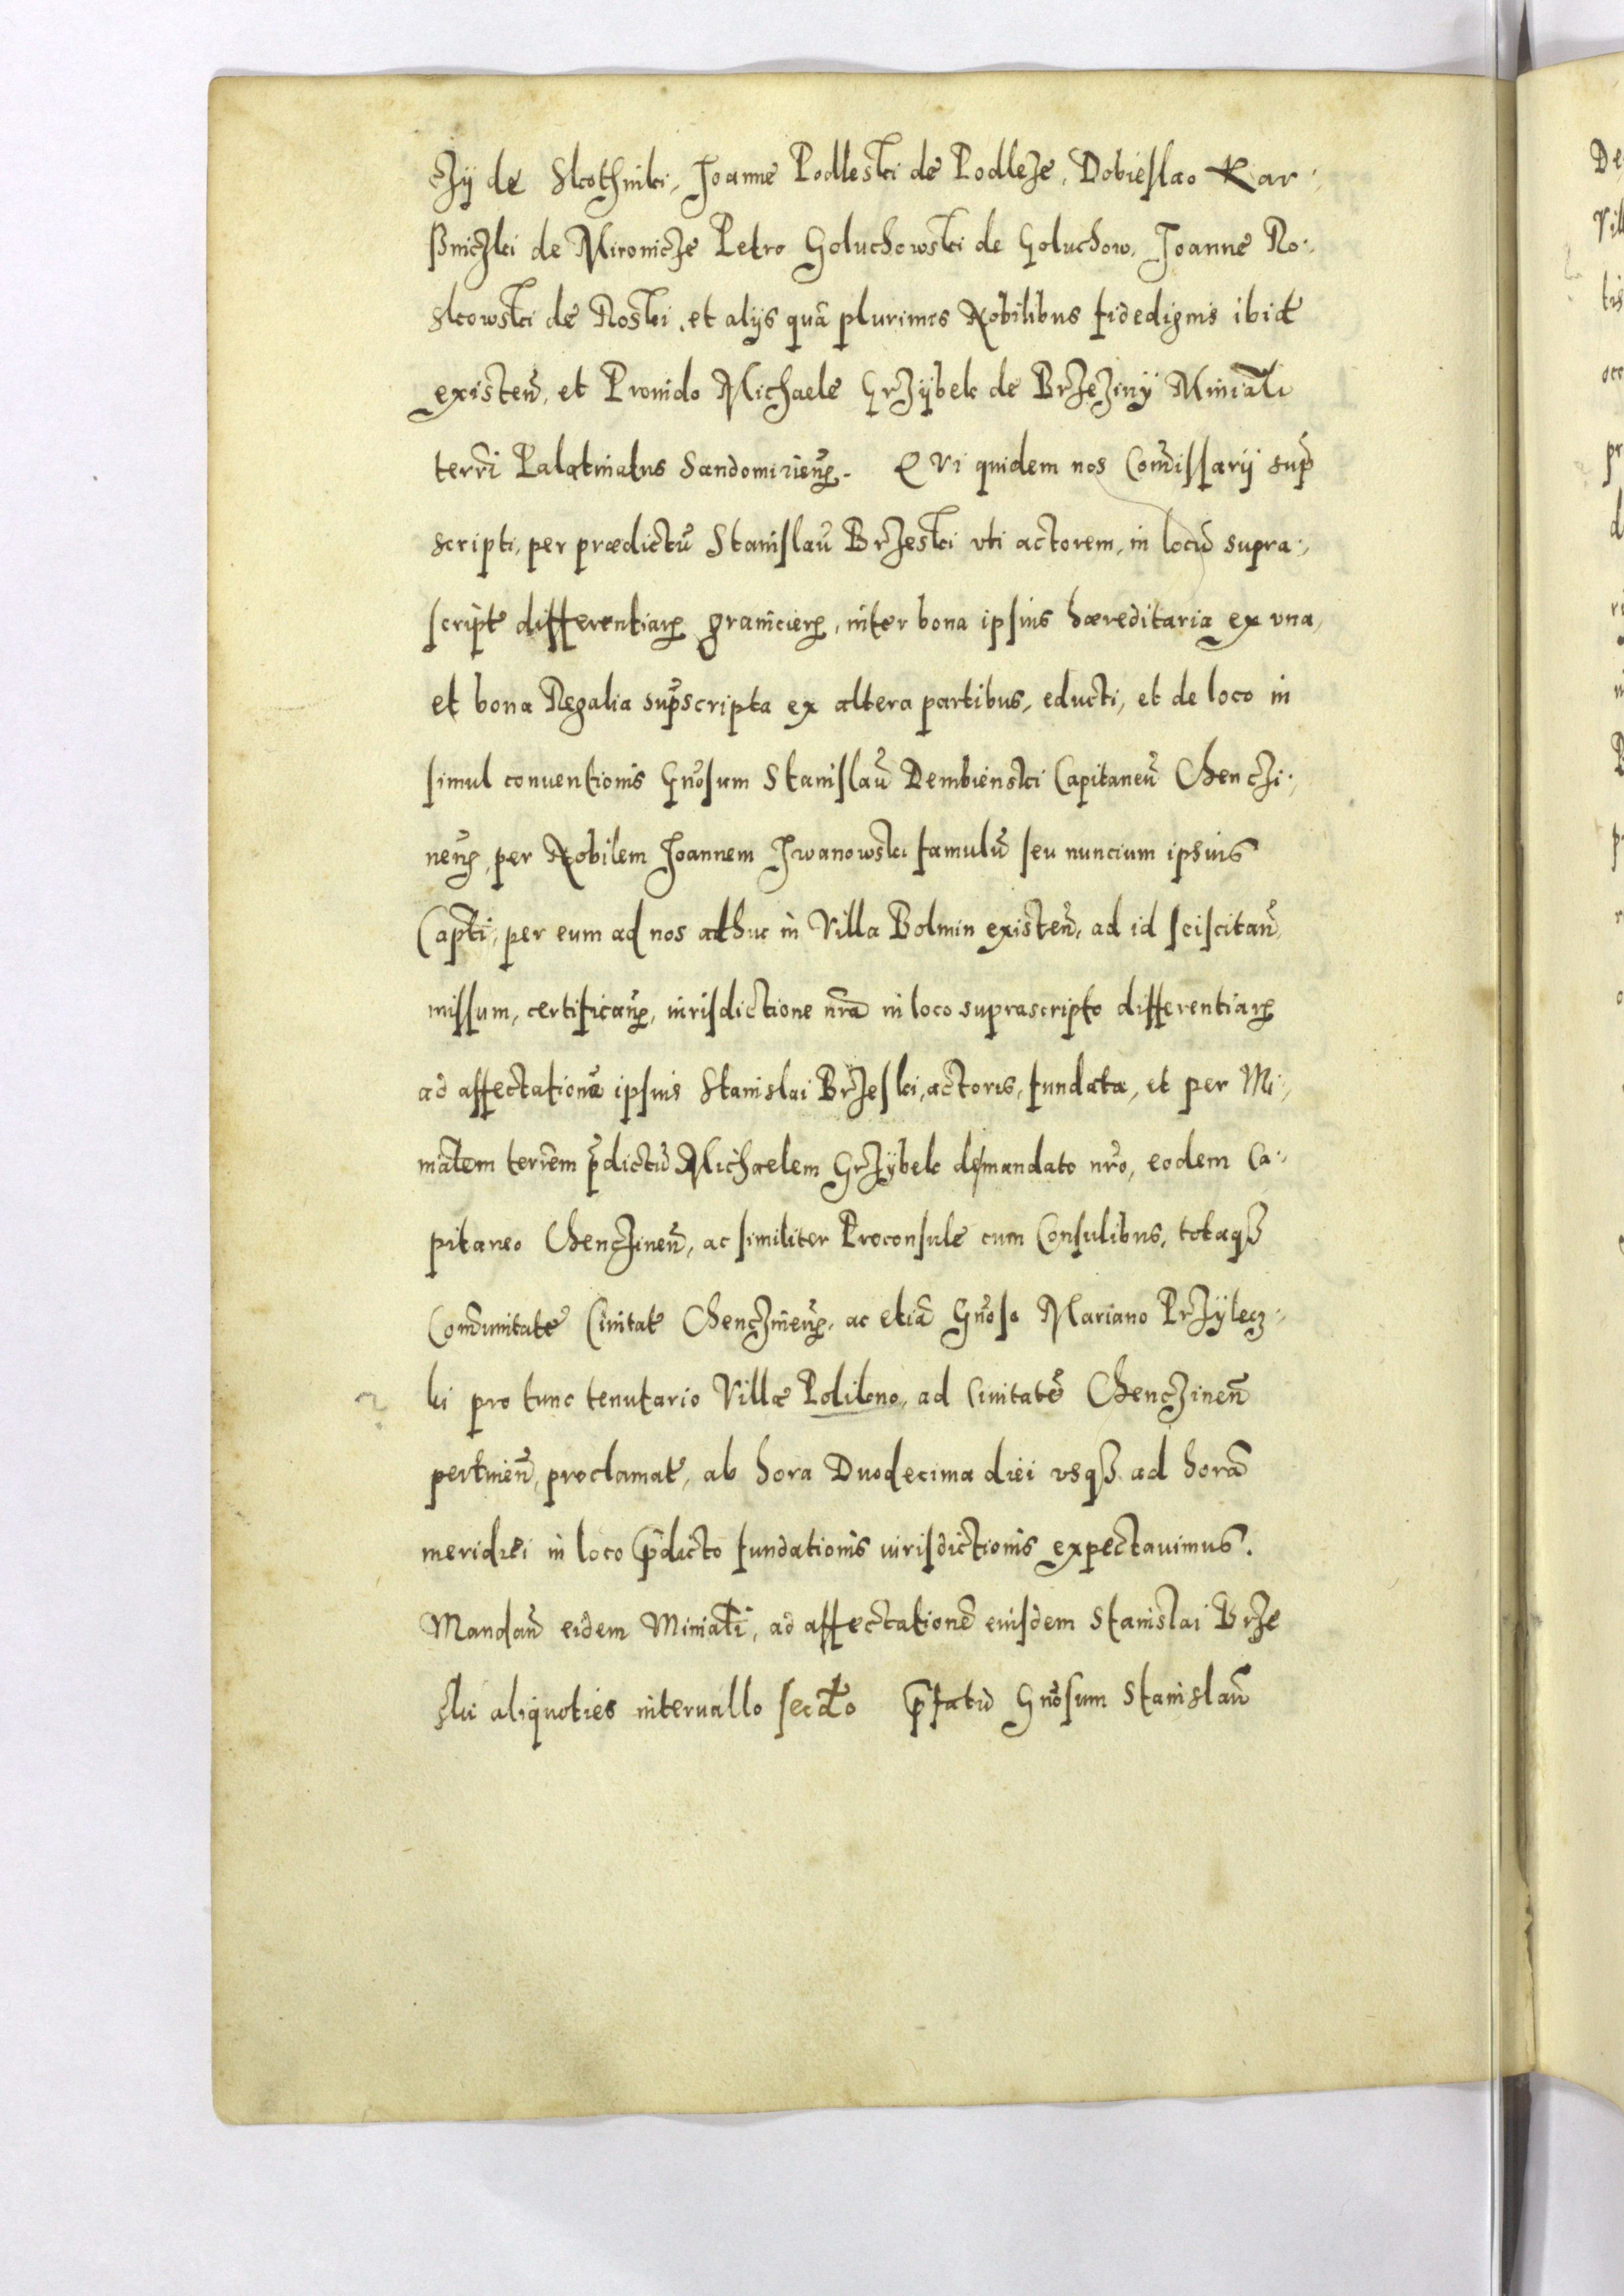 czÿ de Skothniki, Joanne Podleski de Podleze, Dobieslao Kar⸗
ßniczki de Mironicze Petro Goluchowski de Goluchow. Joanne No⸗
skowski de Noski, et alijs quā plurimis Nobilibus fidedignis ibid̄
existeñ, et Prouido Michaele Grzÿbek de Brzezinÿ Miniāli
terrī Palatinatus Sandomirieñ. QVi quidem nos Com̄issarij sup̄
scripti, per prædictū Stanislaū Brzeski vti actorem, in locū supra⸗
script differentiar granicier, inter bona ipsius hæreditaria ex vna,
et bona Regalia sup̄scripta ex altera partibus, educti, et de loco in
simul conuentionis Gn̄osum Stanislaū Dembienski Capitaneū Chenczi⸗
neñ, per Nobilem Joannem Jwanowski famulū seu nuncium ipsius
Capt̄i, per eum ad nos adhuc in Villa Bolmin existeñ, ad id sciscitañ
missum, certificañ, iurisdictione nr̄a in loco suprascripto differentiar
ad affectationē ipsius Stanislai Brzeski, actoris, fundata, et per Mi⸗
niālem terr̄em p̄dictū Michaelem Grzÿbek de mandato nr̄o, eodem Ca⸗
pitaneo Chenczineñ, ac similiter Proconsule cum Consulibus, totaqꝫ
Com̄unitate Ciuitat Chenczineñ, ac etiā Gn̄oso Mariano Przÿlecz⸗
ki pro tunc tenutario Villæ Polikno, ad Ciuitatē Chenczineñ
pertineñ, proclamat, ab hora Duodecima diei vsqꝫ ad horā
meridiei in loco p̄dicto fundationis iurisdictionis expectauimus.
Mandañ eidem Miniāli, ad affectationē eiusdem Stanislai Brze
ski aliquoties interuallo fact̄o p̄fatū Gn̄osum Stanislaū